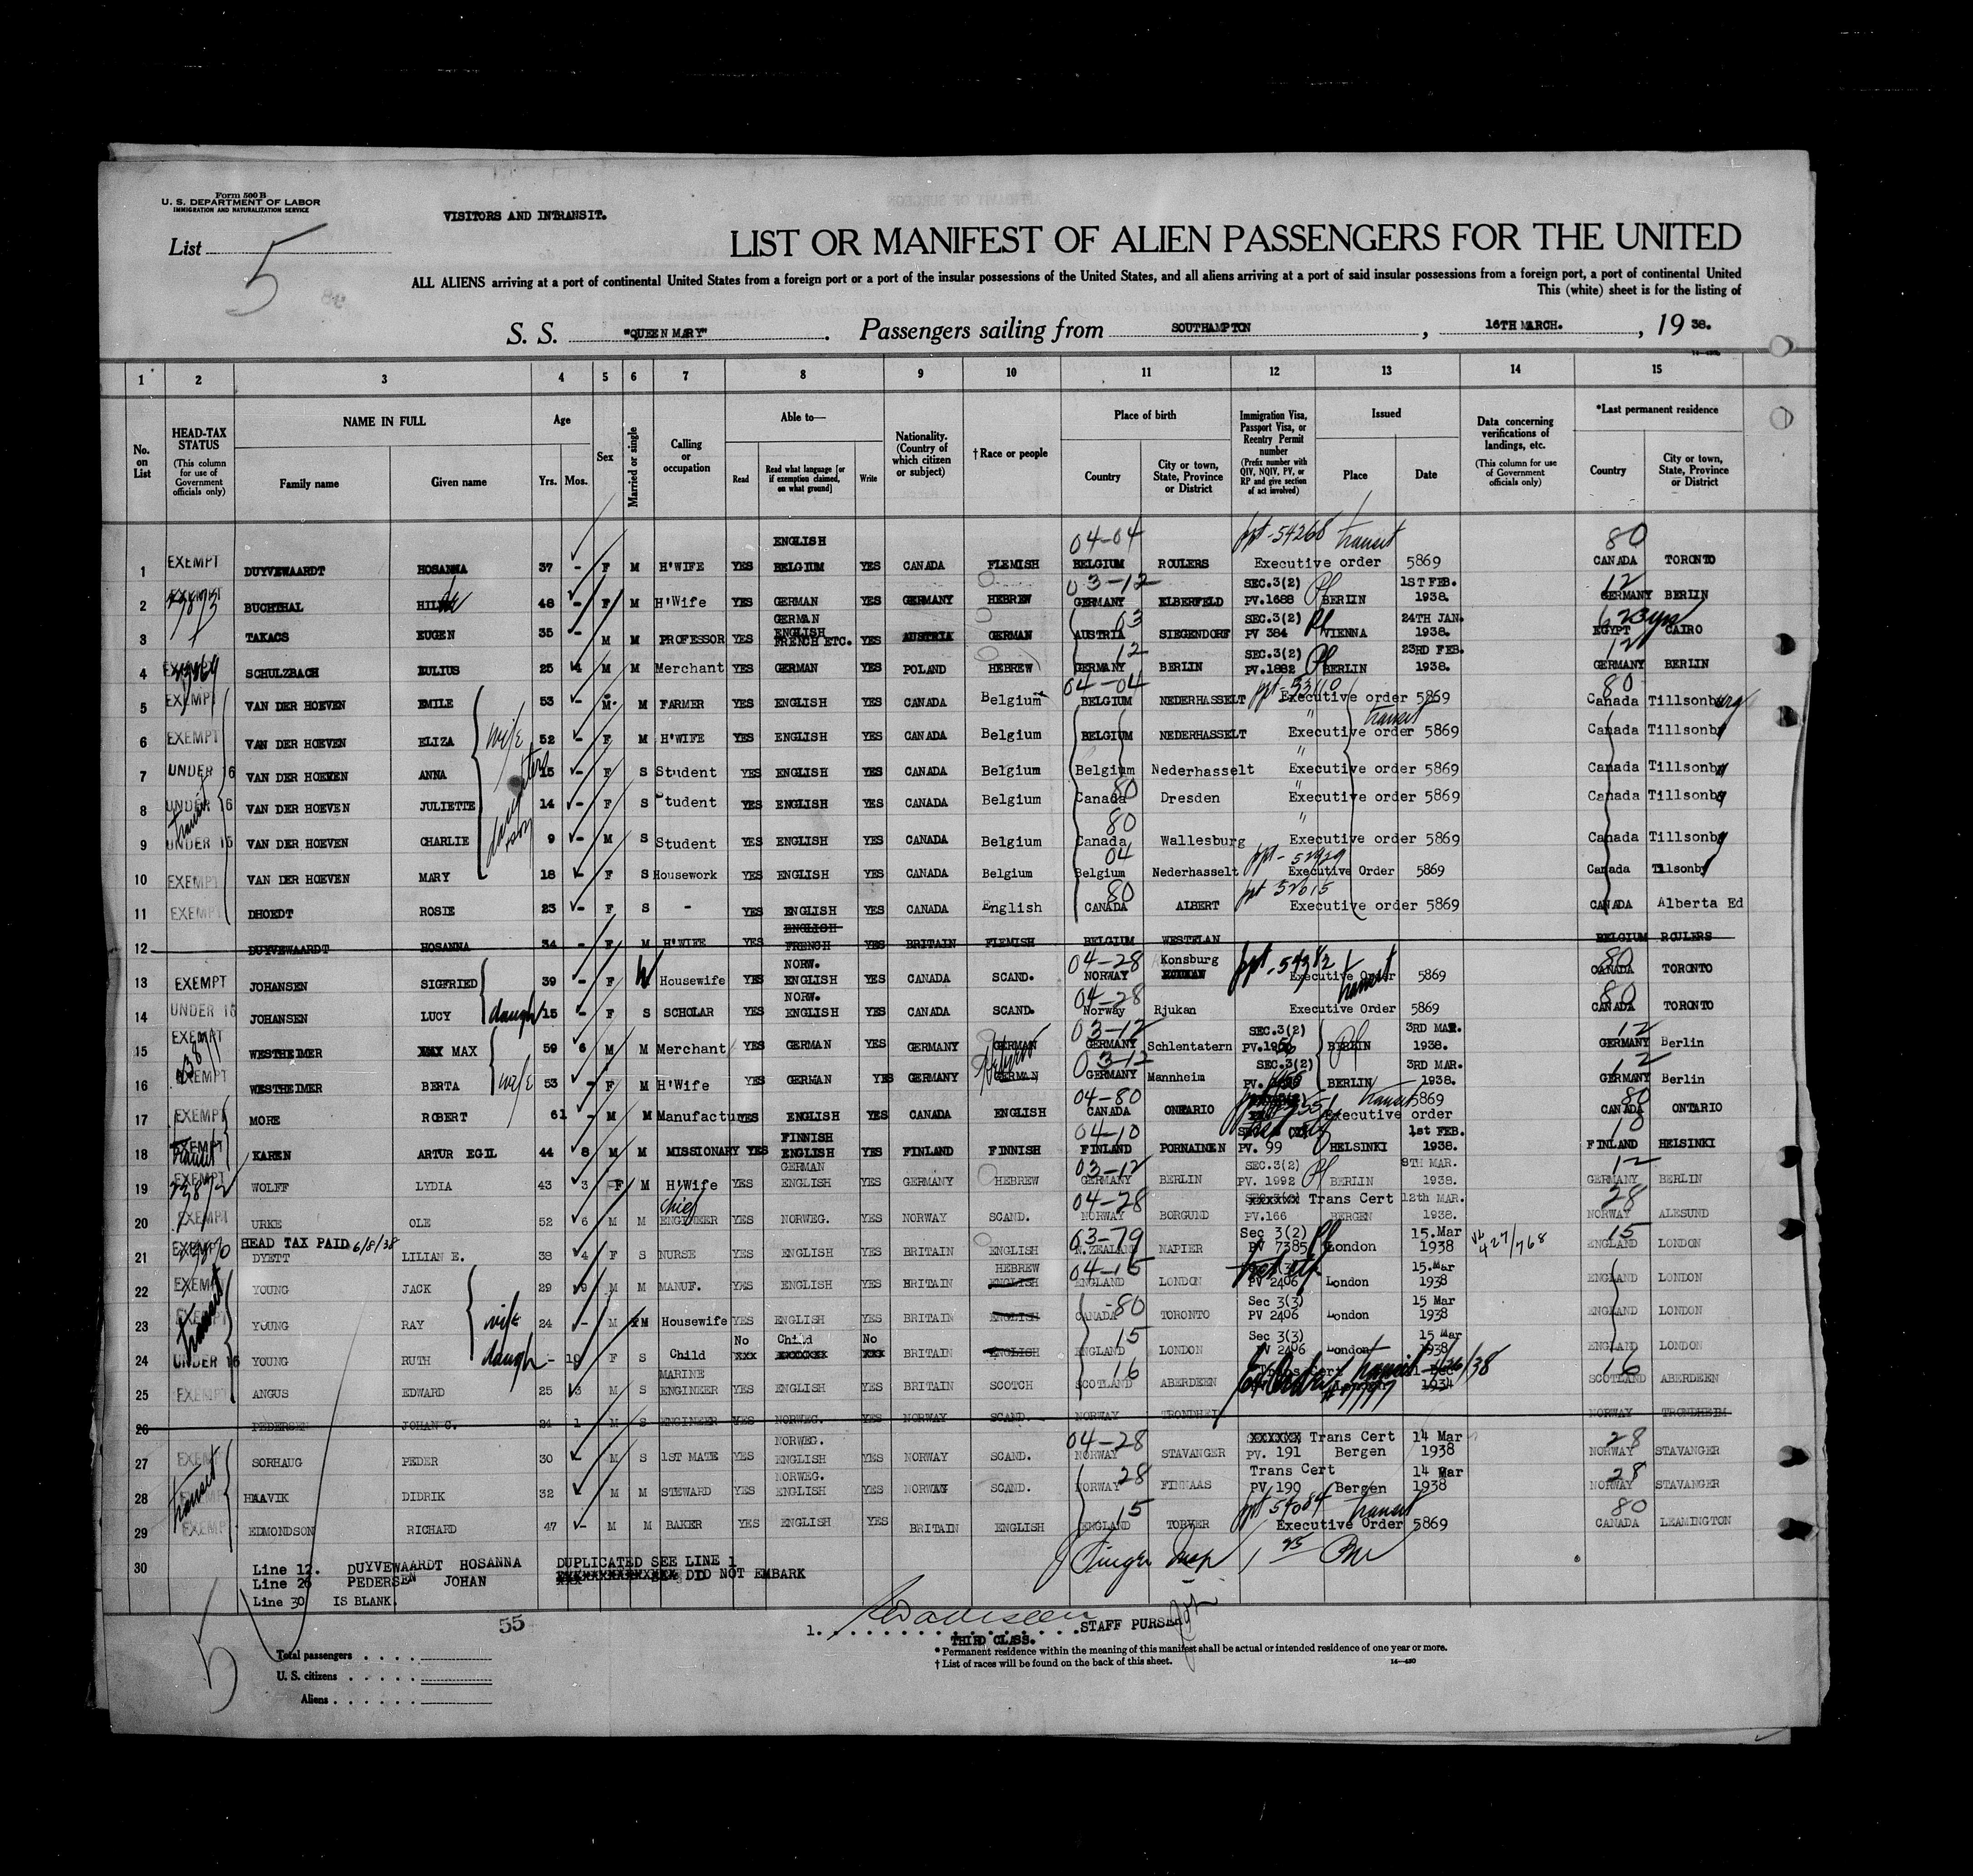 Form 500 B
U. S. DEPARTMENT OF LABOR
IMMIGRATION AND NATURALIZATION SERVICE
VISITORS AND INTRANSIT.
List 5
LIST OR MANIFEST OF ALIEN PASSENGERS FOR THE UNITED
ALL ALIENS arriving at a port of continental United States from a foreign port or a port of the insular possessions of the United States, and all aliens arriving at a port of said insular possessions from a foreign port, a port of continental United
This (white) sheet is for the listing of
S. S. "QUEEN MARY". Passengers sailing from SOUTHAMPTON, 16TH MARCH., 1938.
1 2 3 4 5 6 7 8 9 10 11 12 13 14 15
No. on List
HEAD-TAX STATUS (This column for use of Government officials only)
NAME IN FULL Family name Given name
Age Yrs. Mos.
Sex
Married or single
Calling or occupation
Able to— Read Read what language [or if exemption claimed, on what ground] Write
Nationality. (Country of which citizen or subject)
† Race or people
Place of birth Country City or town, State, Province or District
Immigration Visa, Passport Visa, or Reentry Permit number (Prefix number with QIV, NQIV, PV, or RP and give section of act involved)
Issued Place Date
Data concerning verifications of landings, etc. (This column for use of Government officials only)
*Last permanent residence Country City or town, State, Province or District
1 EXEMPT DUYVEWAARDT HOSANNA 37 - F M H'WIFE YES ENGLISH BELGIUM YES CANADA FLEMISH 04-04 BELGIUM ROULERS ppt-54268 transit Executive order 5869 80 CANADA TORONTO
2 BUCHTHAL 48 - F M H'Wife YES GERMAN YES GERMANY HEBREW 03-12 GERMANY ELBERFELD SEC.3(2) PV.1688 BERLIN 1ST FEB. 1938. 12 GERMANY BERLIN
3 TAKACS EUGEN 35 - M M PROFESSOR YES GERMAN ENGLISH FRENCH ETC. YES AUSTRIA GERMAN 03 AUSTRIA SIEGENDORF SEC.3(2) PV 384 VIENNA 24TH JAN. 1938. EGYPT CAIRO
4 SCHULZBACH EULIUS 25 M M Merchant YES GERMAN YES POLAND HEBREW 12 GERMANY BERLIN SEC.3(2) PV.1882 BERLIN 23RD FEB. 1938. 12 GERMANY BERLIN
5 EXEMPT VAN DER HOEVEN EMILE 53 - M. M FARMER YES ENGLISH YES CANADA Belgium 04-04 BELGIUM NEDERHASSELT ppt-53110 Executive order 5869 80 Canada Tillsonburg
6 EXEMPT VAN DER HOEVEN ELIZA wife 52 - F M H'WIFE YES ENGLISH YES CANADA Belgium BELGIUM NEDERHASSELT " transit Executive order 5869 Canada Tillsonby
7 UNDER 16 VAN DER HOEVEN ANNA daughters 15 - F S Student YES ENGLISH YES CANADA Belgium Belgium Nederhasselt " Executive order 5869 Canada Tillsonby
8 UNDER 16 VAN DER HOEVEN JULIETTE 14 - F S Student YES ENGLISH YES CANADA Belgium 80 Canada Dresden " Executive order 5869 Canada Tillsonby
9 transit UNDER 16 VAN DER HOEVEN CHARLIE son 9 - M S Student YES ENGLISH YES CANADA Belgium 80 Canada Wallesburg " Executive order 5869 Canada Tillsonby
10 EXEMPT VAN DER HOEVEN MARY 18 - F S Housework YES ENGLISH YES CANADA Belgium 04 Belgium Nederhasselt ppt- 52929 Executive Order 5869 Canada Tilsonby
11 EXEMPT DHOEDT ROSIE 23 - F S - YES ENGLISH YES CANADA English 80 CANADA ALBERT ppt 52615 Executive order 5869 CANADA Alberta Ed
12 DUYVEWAARDT HOSANNA 34 - F M H'WIFE YES ENGLISH FRENCH YES BRITAIN FLEMISH BELGIUM WESTELAN BELGIUM ROULERS
13 EXEMPT JOHANSEN SIGFRIED 39 - F W Housewife YES NORW. ENGLISH YES CANADA SCAND. 04-28 NORWAY Konsburg Executive Order 5869 transit 80 CANADA TORONTO
14 UNDER 16 JOHANSEN LUCY daugh 15 - F S SCHOLAR YES NORW. ENGLISH YES CANADA SCAND. 04-28 Norway Rjukan Executive Order 5869 80 CANADA TORONTO
15 EXEMPT WESTHEIMER MAX 59 6 M M Merchant YES GERMAN YES GERMANY GERMAN 03-12 GERMANY Schlentatern SEC.3(2) BERLIN 3RD MAR. 1938. 12 GERMANY Berlin
16 EXEMPT WESTHEIMER BERTA wife 53 - F M H'Wife YES GERMAN YES GERMANY GERMAN Hebrew 03-12 GERMANY Mannheim SEC.3(2) PV. BERLIN 3RD MAR. 1938. 12 GERMANY Berlin
17 EXEMPT MORE ROBERT 61 - M M Manufactur YES ENGLISH YES CANADA ENGLISH 04-80 CANADA ONTARIO transit 5869 Executive order 80 CANADA ONTARIO
18 EXEMPT transit KAREN ARTUR EGIL 44 8 M M MISSIONARY YES FINNISH ENGLISH YES FINLAND FINNISH 04-10 FINLAND PORNAINEN PV. 99 HELSINKI 1st FEB. 1938. 10 FINLAND HELSINKI
19 EXEMPT WOLFF LYDIA 43 3 F M H'Wife YES GERMAN ENGLISH YES GERMANY HEBREW 03-12 GERMANY BERLIN SEC.3(2) PV. 1992 BERLIN 9TH MAR. 1938. 12 GERMANY BERLIN
20 EXEMPT URKE OLE 52 6 M M Chief ENGINEER YES NORWEG. YES NORWAY SCAND. 04-28 NORWAY BORGUND Trans Cert PV.166 BERGEN 12th MAR. 1938. 28 NORWAY ALESUND
21 EXEMPT HEAD TAX PAID 6/8/38 DYETT LILIAN E. 38 4 F S NURSE YES ENGLISH YES BRITAIN ENGLISH 03-79 N.ZEALAND NAPIER Sec 3(2) PV 7385 London 15.Mar 1938 427/768 15 ENGLAND LONDON
22 EXEMPT YOUNG JACK 29 9 M M MANUF. YES ENGLISH YES BRITAIN HEBREW ENGLISH 04-15 ENGLAND LONDON PV 2406 London 15.Mar 1938 ENGLAND LONDON
23 transit YOUNG RAY wife 24 - M M Housewife YES ENGLISH YES BRITAIN ENGLISH -80 CANADA TORONTO Sec 3(3) PV 2406 London 15 Mar 1938 ENGLAND LONDON
24 UNDER 16 YOUNG RUTH daugh - 19 F S Child No xxx Child No xxx BRITAIN ENGLISH 15 ENGLAND LONDON Sec 3(3) PV 2406 London 15 Mar 1938 ENGLAND LONDON
25 EXEMPT ANGUS EDWARD 25 3 M S MARINE ENGINEER YES ENGLISH YES BRITAIN SCOTCH 16 SCOTLAND ABERDEEN transit 16 SCOTLAND ABERDEEN
26 PEDERSEN JOHAN C. 24 1 M S ENGINEER YES NORWEG. YES NORWAY SCAND. NORWAY TRONDHEIM NORWAY TRONDHEIM
27 EXEMPT SORHAUG PEDER 30 - M S 1ST MATE YES NORWEG. ENGLISH YES NORWAY SCAND. 04-28 NORWAY STAVANGER XXXXXX Trans Cert PV. 191 Bergen 14 Mar 1938 28 NORWAY STAVANGER
28 transit HAAVIK DIDRIK 32 M M STEWARD YES NORWEG. ENGLISH YES NORWAY SCAND. 28 NORWAY FINNAAS Trans Cert PV 190 Bergen 14 Mar 1938 28 NORWAY STAVANGER
29 EXEMPT EDMONDSON RICHARD 47 - M M BAKER YES ENGLISH YES BRITAIN ENGLISH 15 ENGLAND TORVER ppt 54084 transit Executive Order 5869 80 CANADA LEAMINGTON
30 Line 12. DUYVEWAARDT HOSANNA DUPLICATED SEE LINE 1
Line 26 PEDERSEN JOHAN DID NOT EMBARK
Line 30 IS BLANK.
55
5
1. STAFF PURSER
THIRD CLASS.
Total passengers
U. S. citizens
Aliens
* Permanent residence within the meaning of this manifest shall be actual or intended residence of one year or more.
† List of races will be found on the back of this sheet.
14—430